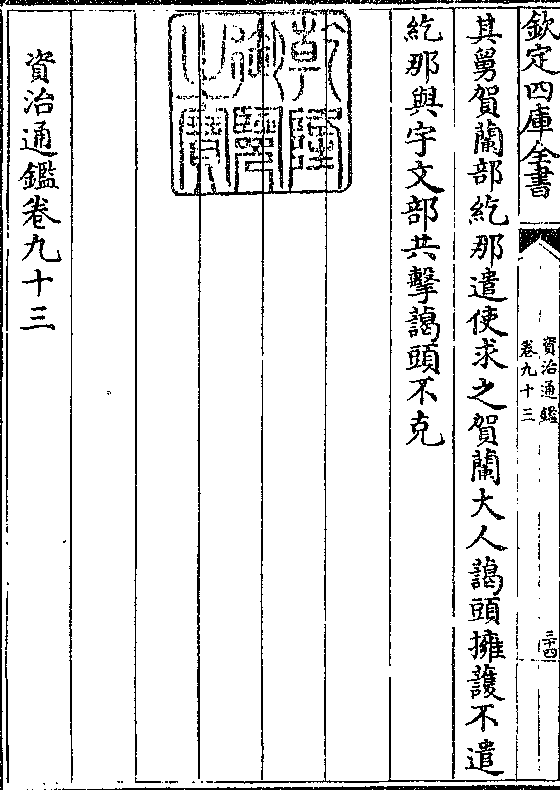 欽定四庫全書
資治通鑑
卷九十三
三十四
其舅賀蘭部紇那遣使求之賀蘭大人藹頭擁護不遣
紇那與宇文部共擊藹頭不克
乾隆
御覽
之寶
資治通鑑卷九十三